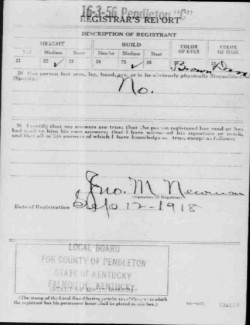 16-3-56 Pendleton "C"
REGISTRAR'S REPORT
DESCRIPTION OF REGISTRANT
HEIGHT BUILD COLOR OF EYES COLOR OF HAIR
Tall Medium Short Slender Medium Stout
21 22 23 24 25 26 27 28
✓ ✓ Brown
29 Has person lost arm, leg, hand, eye, or is he obviously physically disqualified?
(Specify.)
No.
30 I certify that my answers are true; that the person registered has read or has
had read to him his own answers; that I have witnessed his signature or mark,
and that all of his answers of which I have knowledge are true, except as follows:
Jno. M Newman
Date of Registration Sept 12-1918
LOCAL BOARD
FOR COUNTY OF PENDLETON
STATE OF KENTUCKY
FALMOUTH, KENTUCKY
(The stamp of the Local Board having jurisdiction of the area in which
the registrant has his permanent home shall be placed in this box.)